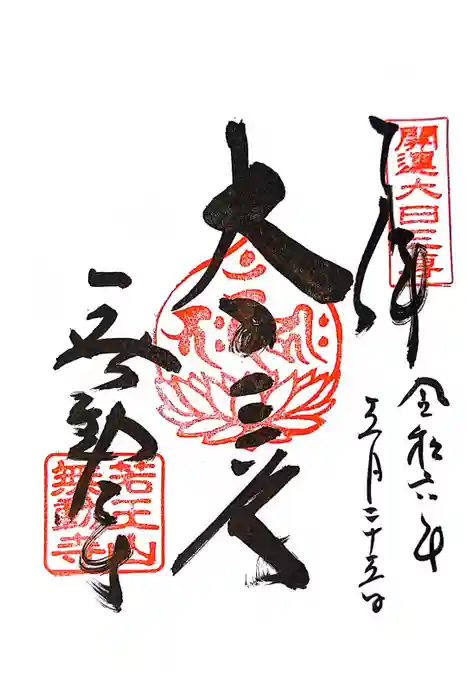 開運大日三尊
奉拝
令和六年
五月二十五日
大日三尊
無動寺
若王山
無動寺